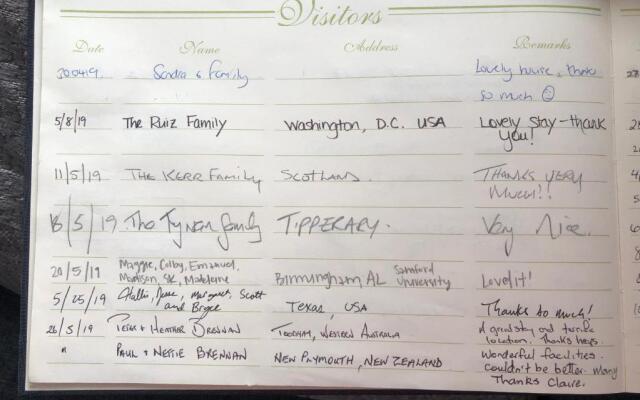 Visitors
Date Name Address Remarks
30.04.19. Sandra & Family Lovely house, thanks
so much ☺
5/8/19 The Ruiz Family Washington, D.C. USA Lovely stay - thank
you!
11/5/19 The Kerr Family Scotland. Thanks very
much!!
16/5/19 The Tynan family Tipperary. Very Nice.
20/5/19 Maggie, Colby, Emmanuel, Birmingham AL Samford
Madison, Madeleine University Loved it!
5/25/19 Hallie, Margaret, Scott
and Bryce Texas, USA Thanks so much!
26/5/19 Peter & Heather Brennan Toodyay, Western Australia A grand stay and terrific
location. Thanks heaps.
" Paul & Nettie Brennan New Plymouth, New Zealand Wonderful facilities.
couldn't be better. Many
Thanks Claire.